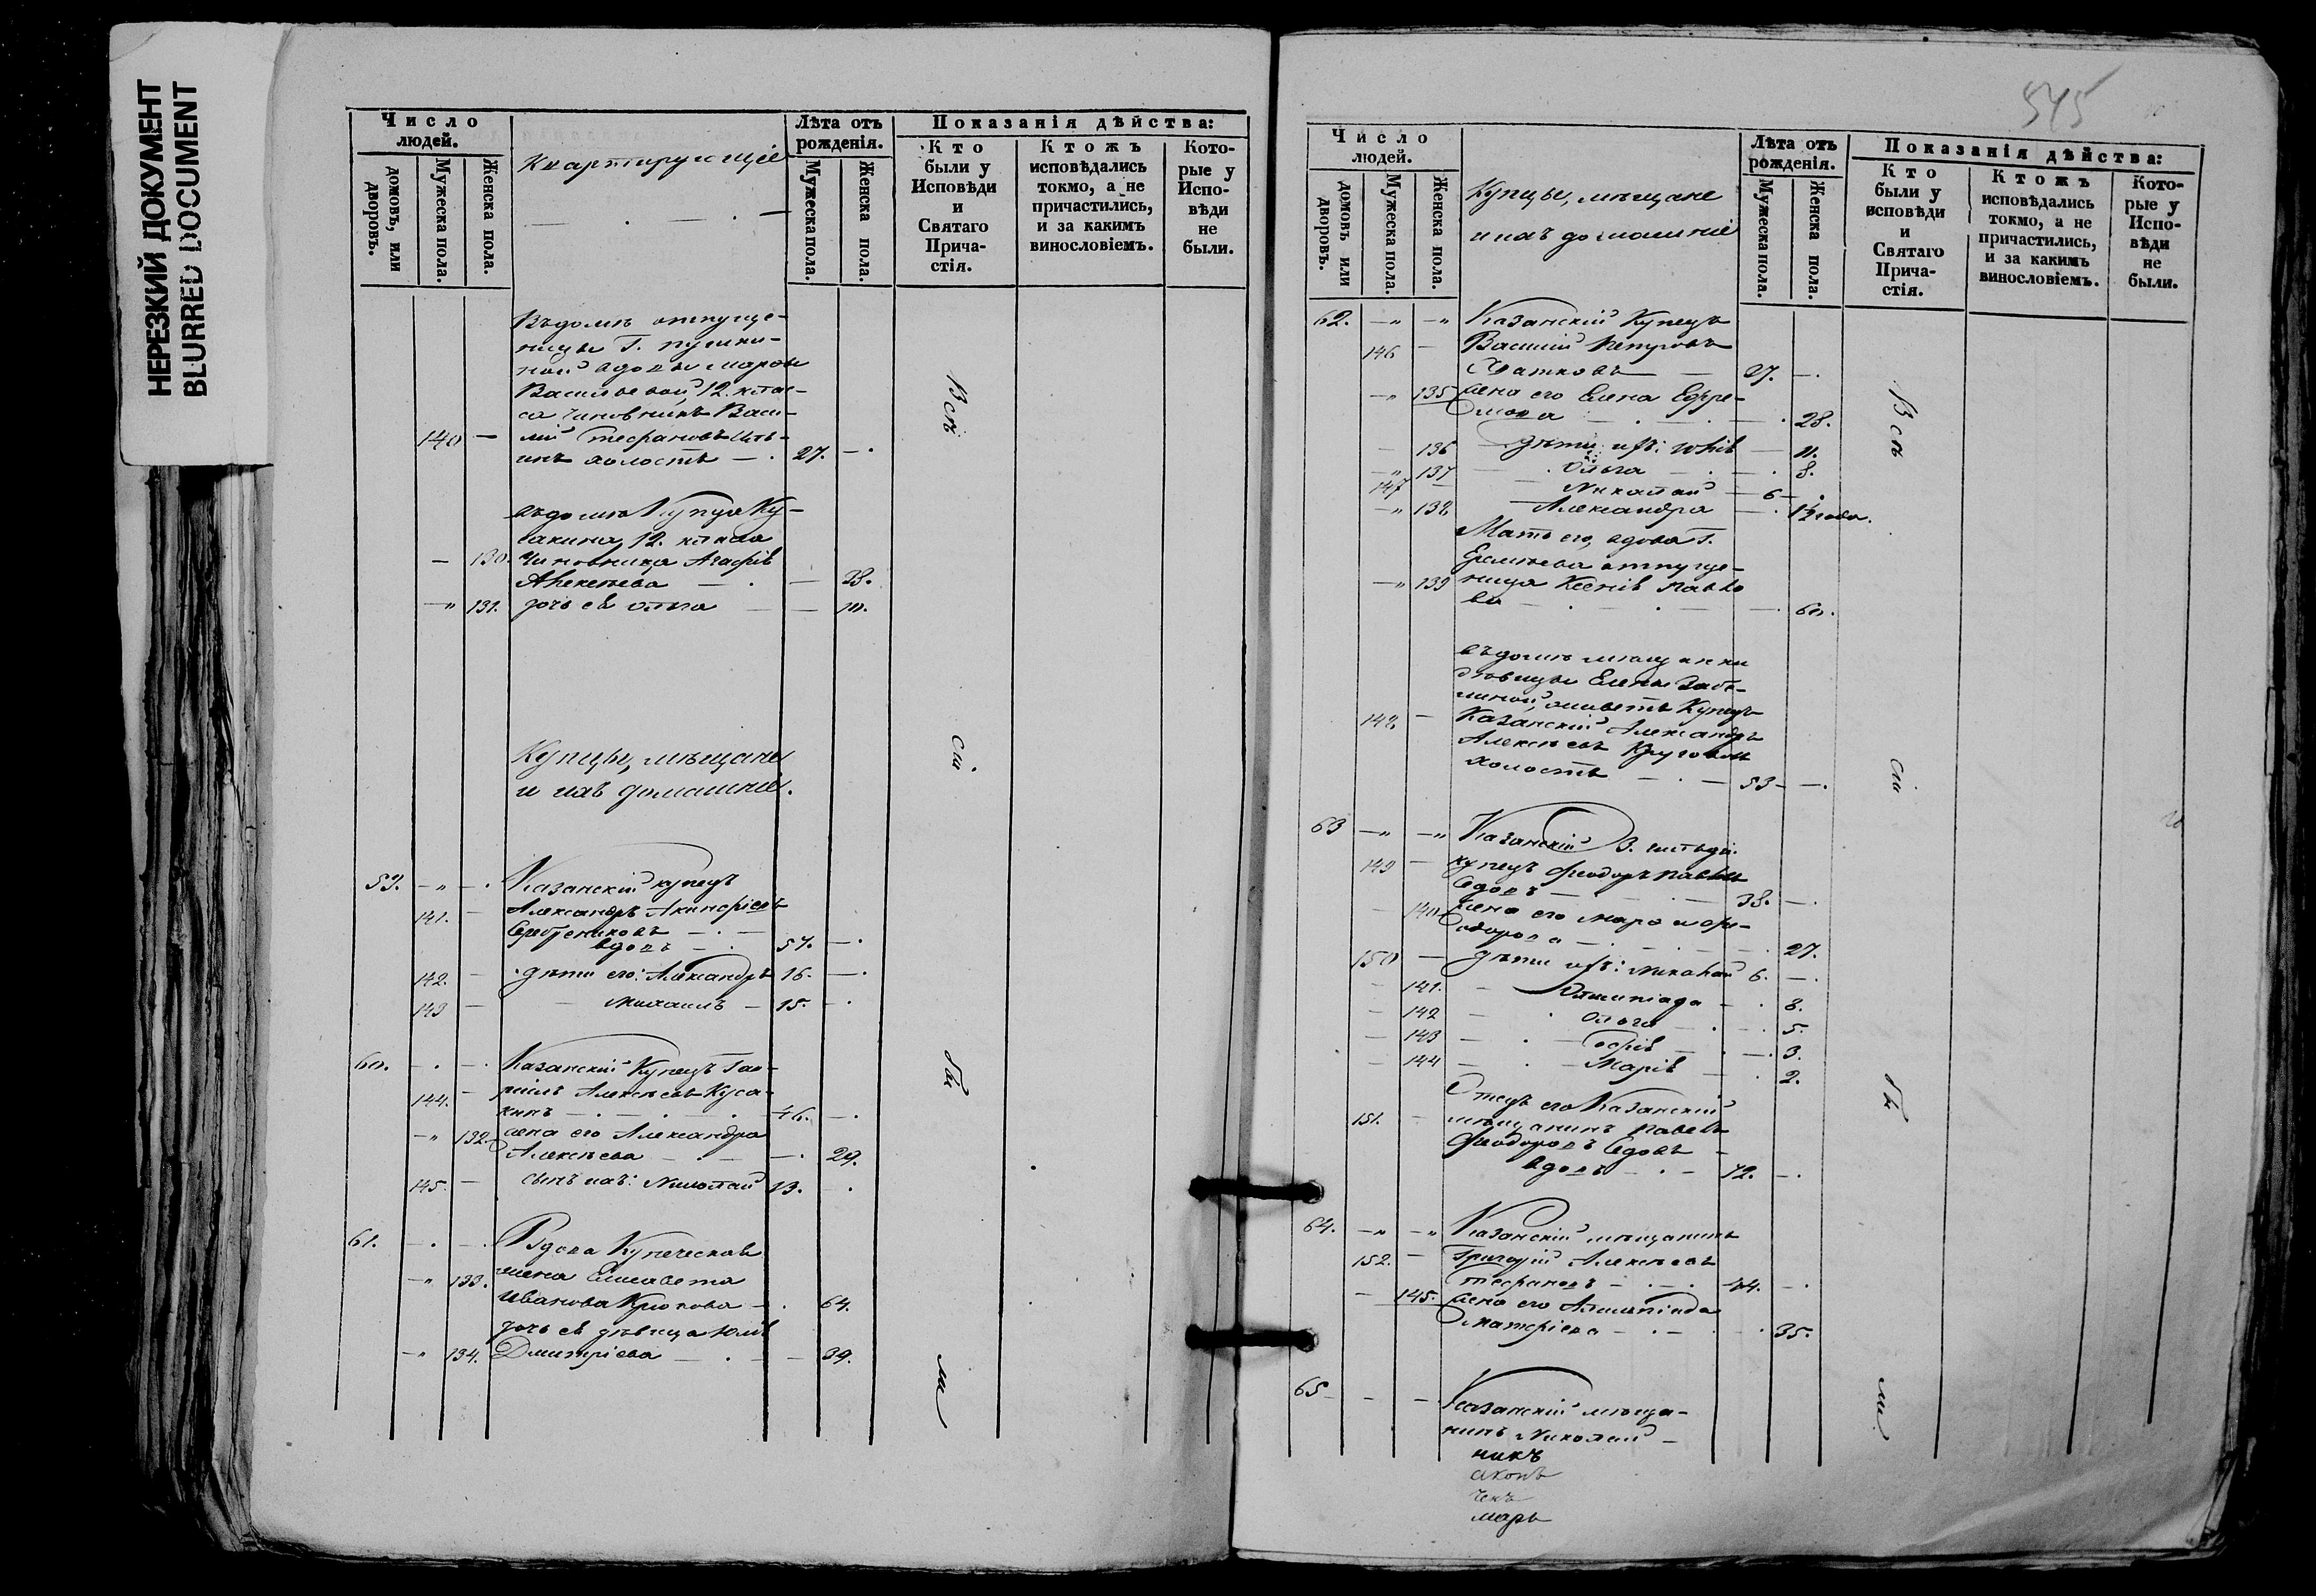 НЕРЕЗКИЙ ДОКУМЕНТ
BLURRED DOCUMENT
Число
людей.
домовъ, или
дворовъ.
Мужеска пола.
Женска пола.
Квартирующіе
Лѣта отъ
рожденія.
Мужеска пола.
Женска пола.
Показанія дѣйства:
Кто
были у
Исповѣди
и
Святаго
Прича-
стія.
Ктожъ
исповѣдались
токмо, а не
причастились,
и за какимъ
винословіемъ.
Кото-
рые у
Испо-
вѣди
не
были.
Въ домѣ отпуще-
ницы Г. Пушки-
ной вдовы Марѳы
Васильевой, 12. клас-
са чиновникъ Васи-
140 — лій
инъ холостъ — . 27. — .
въ домѣ Купца Ку-
сакина, 12. класса
— 130. Чиновница Агафія
Алексѣева — 38.
— " 131. дочь ея Ольга — — 10.
Купцы, мѣщане
и ихъ домашніе.
59. — " — . Казанскій купецъ
141. — Александръ Акинфіевъ
Серебрениковъ — . —
вдовъ — . 57. — .
142. — дѣти его: Александръ 16. — .
143 — — Михаилъ — 15. — .
60. — . — . Казанскій Купецъ Гав-
144. — ріилъ Алексѣевъ Куса-
кинъ — . — . 46. — .
— " 132. жена его Александра
Алексѣева — . — — . 29.
145. — сынъ ихъ: Николай 13. .
61. — . — . Вдова Купеческая
— " 133. жена Елисавета
Иванова Крюкова — . 64.
дочь ея дѣвица Юлія
— " 134. Дмитріева — . — — 39.
Всѣ
сіи
бы
ли
545
Число
людей.
домовъ или
дворовъ.
Мужеска пола.
Женска пола.
Купцы, мѣщане
и ихъ домашніе
Лѣта отъ
рожденія.
Мужеска пола.
Женска пола.
Показанія дѣйства:
Кто
были у
исповѣди
и
Святаго
Прича-
стія.
Ктожъ
исповѣдались
токмо, а не
причастились,
и за какимъ
винословіемъ.
Кото-
рые у
Испо-
вѣди
не
были.
62. — " — " Казанскій Купецъ
146 — Василій Петровъ
— 27. — .
— " 135 жена его Елена Ефре-
мова — . — . 28.
— 136 дѣти ихъ: Юлія — 11.
— " 137 — . Ольга — . — . 8.
147 — Николай — 6 — .
— " 138 — Александра — . 1½ года.
Мать его, вдова Г.
отпуще-
— " 139 ница Ксенія Павло
ва — . — . — . 60.
въ домѣ мѣщанки
дѣвицы Елены
живетъ Купецъ
148. — Казанскій Александръ
Алексѣевъ
холостъ — . — 53 — — .
63 — " — " Казанскій 3. гильдіи
149 — купецъ Ѳеодоръ Павловъ
Сѣдовъ — 38. — .
— 140 жена его Марѳа Ѳе-
одорова — . — . 27.
150 — дѣти ихъ: Николай 6. — .
— 141. — Олимпіада — . 8.
— 142 — . Ольга — . 5.
— 143 — . Софія — . — . 3.
— 144 — . Марія — . 2.
Отецъ его Казанскій
151. — мѣщанинъ Павелъ
Ѳеодоровъ Сѣдовъ —
вдовъ — . — 72. — .
64. — " — " Казанскій мѣщанинъ
152. — Григорій Алексѣевъ
— . — . 44. — .
— 145. жена его Алимпіада
Матфіева — . — . 35.
65 — — — Казанскій мѣща-
нинъ Николай —
никъ
аконъ
чекъ
марь
Всѣ
сіи
бы
ли